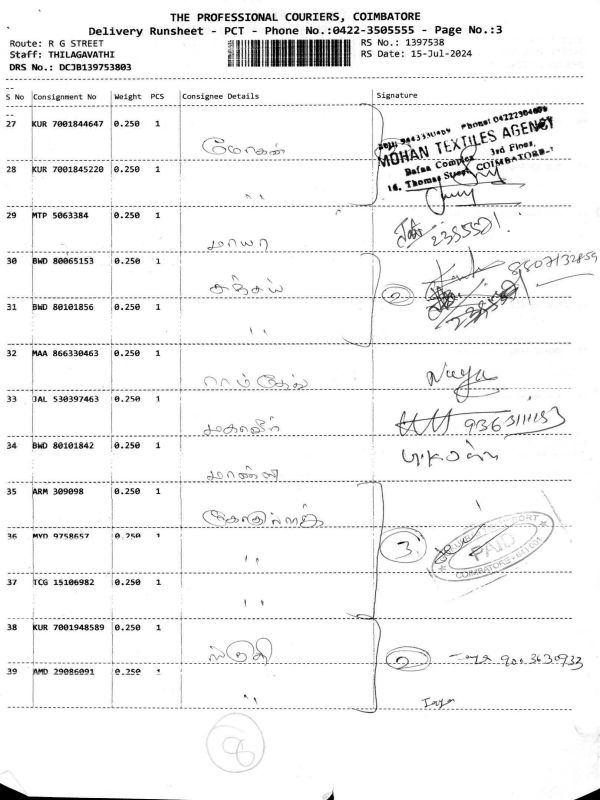 THE PROFESSIONAL COURIERS, COIMBATORE
Delivery Runsheet - PCT - Phone No.:0422-3505555 - Page No.:3
Route: R G STREET
RS No.: 1397538
Staff: THILAGAVATHI
RS Date: 15-Jul-2024
DRS No.: DCJB139753803
S No Consignment No Weight PCS Consignee Details Signature
27 KUR 7001844647 0.250 1
மோகன்
MOHAN TEXTILES AGENCY
3rd Floor,
16, Thomas Street, COIMBATORE-1
28 KUR 7001845220 0.250 1
" "
29 MTP 5063384 0.250 1
மாயா
2355521
30 BWD 80065153 0.250 1
சஞ்சய்
2
31 BWD 80101856 0.250 1
" "
32 MAA 866330463 0.250 1
ராம்தேவ்
33 JAL 530397463 0.250 1
மகாவீர்
34 BWD 80101842 0.250 1
35 ARM 309098 0.250 1
36 MYD 9758657 0.250 1
" "
3
PAID
COIMBATORE
37 TCG 15106982 0.250 1
" "
38 KUR 7001948589 0.250 1
2
39 AMD 29086091 0.250 1
" "
Jaya
8